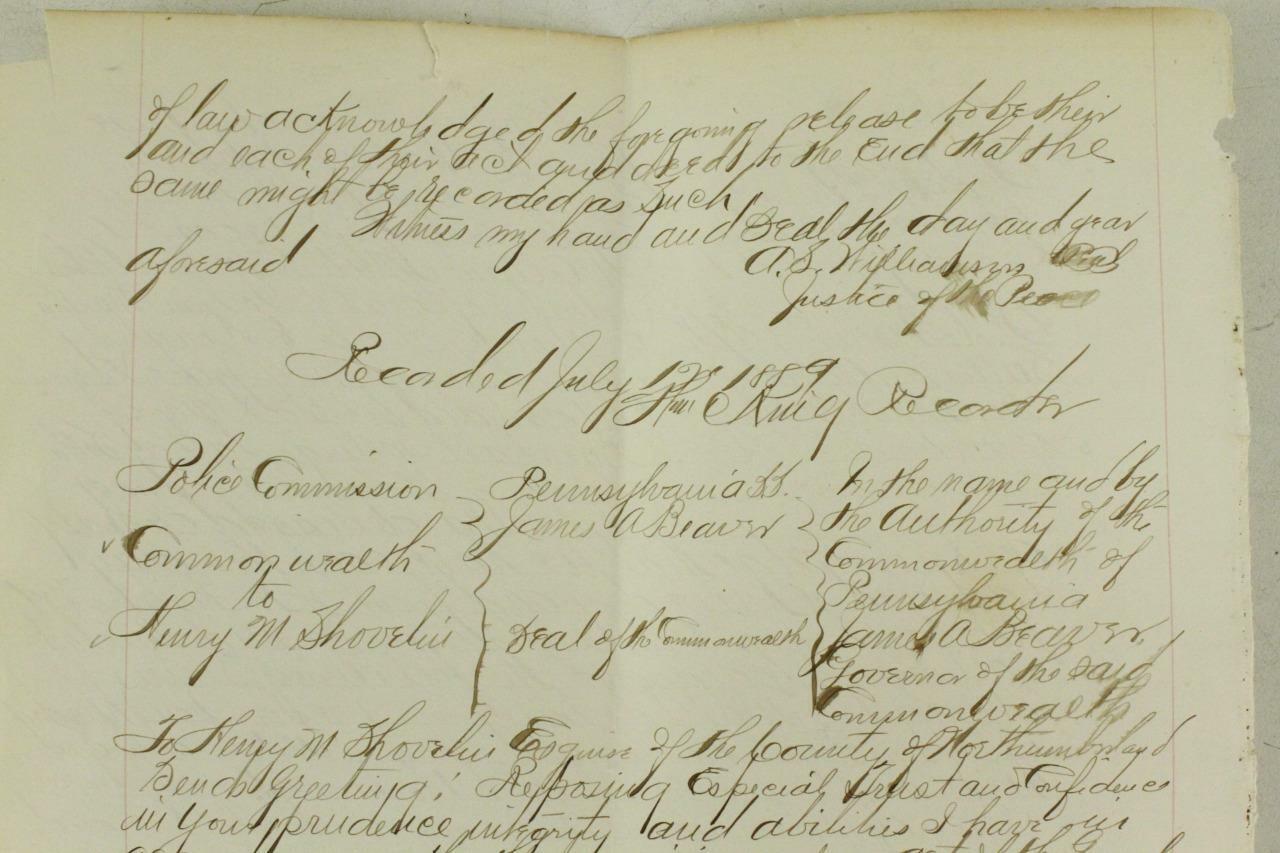 of law acknowledged the foregoing release to be their
and each of their act and deed to the End that the
same might be recorded as Such
Witness my hand and Seal the day and year
aforesaid
A. S. Williamson Seal
Justice of the Peace
Recorded July 12th 1889
Recorder
Police Commission
Commonwealth
to
Henry M Shovelin
Pennsylvania SS.
James A Beaver
Seal of the Commonwealth
In the name and by
the Authority of the
Commonwealth of
Pennsylvania
James A Beaver,
Governor of the said
Commonwealth
To Henry M Shovelin Esquire of the County of Northumberland
Sends Greeting! Reposing Especial Trust and Confidence
in your prudence integrity and abilities I have